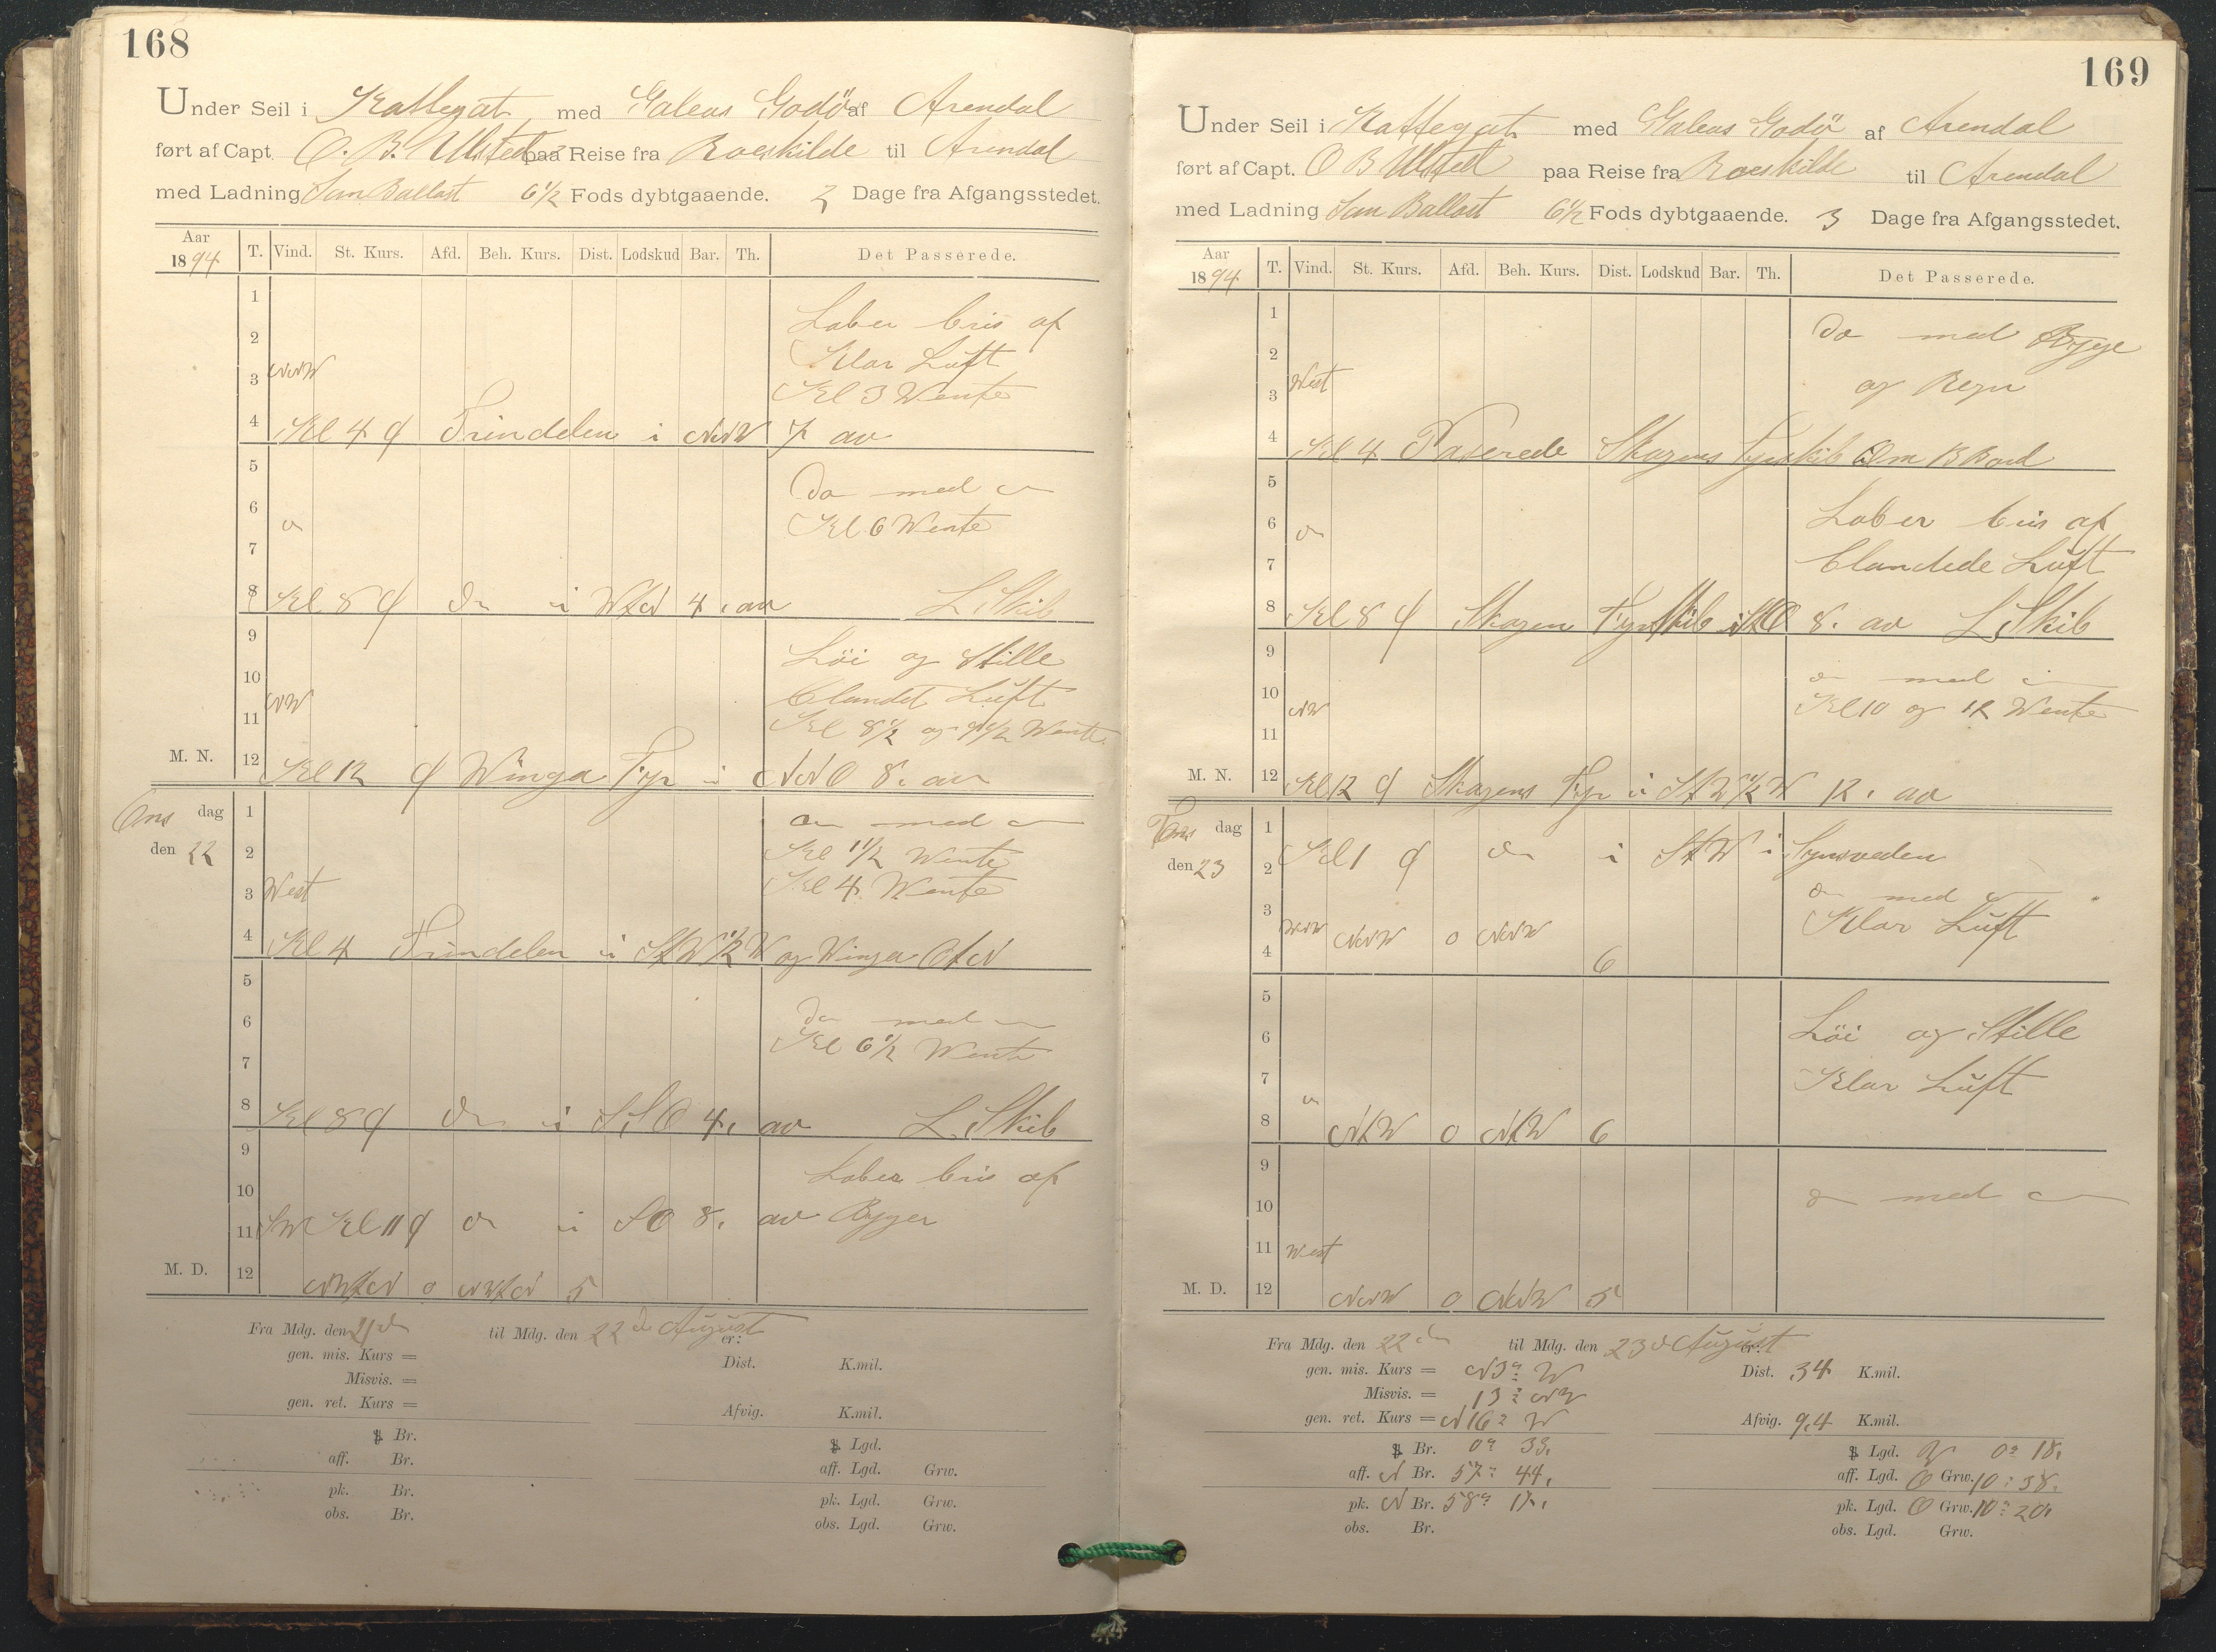 168
Under Seil i Kattegat med Galeas Godö af Arendal
ført af Capt. O. B. Ulsted paa Reise fra Roeskilde til Arendal
med Ladning San Ballast 6 1/2 Fods dybtgaaende. 2 Dage fra Afgangsstedet.
Aar 1894 T. Vind. St. Kurs. Afd. Beh. Kurs. Dist. Lodskud Bar. Th. Det Passerede.
1
Laber bris af
2
Klar Luft
NNW
3
Kl 3 Wente
4 Kl 4 Trindelen i NNW 7 av
5
Do med
6
Kl 6 Wente
7
8 Kl 8 do i WtN 4. av L. Skib
9
Löi og Stille
10
Clandet Luft
NW
11
Kl 8 1/2 og Wente
M. N. 12 Kl 12 Winga Fyr i NNO 8. av
Ons dag 1
den 22 2
med
Kl 1 1/2 Wente
3 West
Kl 4 Wente
4 Kl 4 Trindelen i StW 1/2 W og Winga OtN
5
6
Do med
Kl 6 1/2 Wente
7
8 Kl 8 do i S.S.O 4. av L. Skib
9
Laber bris af
10
11 SW Kl 11 do i SO 8. av Byger
M. D. 12 NWtN 0 NWtN 5
Fra Mdg. den 21 d til Mdg. den 22 d August er:
gen. mis. Kurs = Dist. K.mil.
Misvis. =
gen. ret. Kurs = Afvig. K.mil.
Br. Lgd.
aff. Br. aff. Lgd. Grw.
pk. Br. pk. Lgd. Grw.
obs. Br. obs. Lgd. Grw.
169
Under Seil i Kattegat med Galeas Godö af Arendal
ført af Capt. O B Ulsted paa Reise fra Roeskilde til Arendal
med Ladning San Ballast 6 1/2 Fods dybtgaaende. 3 Dage fra Afgangsstedet.
Aar 1894 T. Vind. St. Kurs. Afd. Beh. Kurs. Dist. Lodskud Bar. Th. Det Passerede.
1
Do med Byge
2
West
og Regn
3
4 Kl 4 Paserede Skagens Fyrskib Om B Bord
5
6
Laber bris af
7
Clandede Luft
8 Kl 8 Skagen Fyrskib i StO 8. av L. Skib
9
do med
10
NW
Kl 10 og 12 Wente
11
M. N. 12 Kl 12 Skagens Fyr i StW 1/2 W 12. av
Tors dag 1
den 23 2 Kl 1 do i StW i Synsveden
do med
3
Klar Luft
WNW NNW 0 NNW
4 6
5
6
Löi og Stille
7
Klar Luft
8 NtW 0 NtW 6
9
do med
10
11 West
M. D. 12 NNW 0 NNW 5
Fra Mdg. den 22 d til Mdg. den 23 d August er:
gen. mis. Kurs = N 3° W Dist. 34 K.mil.
Misvis. = 13° NW
gen. ret. Kurs = N 16° W Afvig. 9,4 K.mil.
Br. 0° 33. Lgd. W 0° 18.
aff. N Br. 57° 44. aff. Lgd. O Grw. 10° 38.
pk. N Br. 58° 17. pk. Lgd. O Grw. 10° 20.
obs. Br. obs. Lgd. Grw.